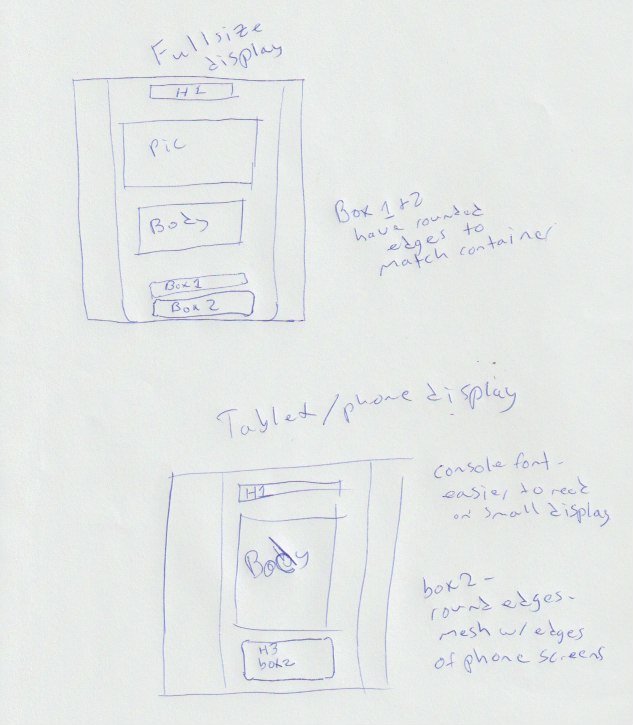 Fullsize
display
H1
Pic
Body
Box 1
Box 2
Box 1 + 2
have rounded
edges to
match container
Tablet/phone display
H1
Body
H3
box2
console font -
easier to read
on small display
box2 -
round edges -
mesh w/ edges
of phone screens